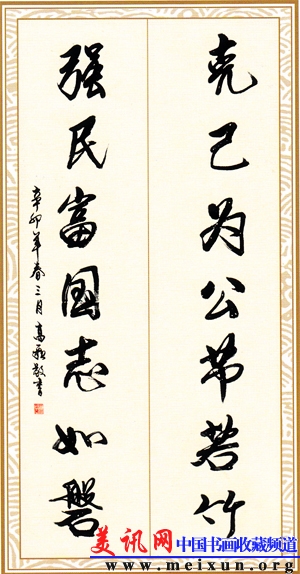 克己为公若竹
强民富國志如磐
辛卯年春三月 高
美讯网 中国书画收藏频道
www.meixun.org